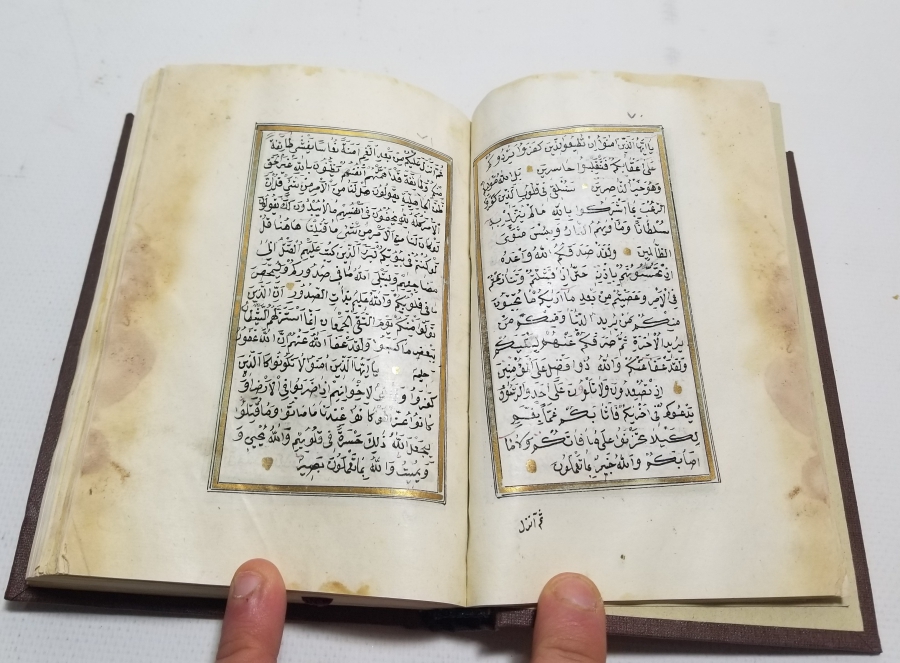 ٧٠
يا ايها الذين امنوا ان تطيعوا الذين كفروا يردوكم
على اعقابكم فتنقلبوا خاسرين بل الله موليكم
وهو خير الناصرين سنلقي في قلوب الذين كفروا
الرعب بما اشركوا بالله ما لم ينزل به
سلطانا وماويهم النار وبئس مثوى
الظالمين ولقد صدقكم الله وعده
اذ تحسونهم باذنه حتى اذا فشلتم وتنازعتم
في الامر وعصيتم من بعد ما اريكم ما تحبون
منكم من يريد الدنيا ومنكم من
يريد الاخرة ثم صرفكم عنهم ليبتليكم
ولقد عفا عنكم والله ذوا فضل على المؤمنين
اذ تصعدون ولا تلون على احد والرسول
يدعوكم في اخريكم فاثابكم غما بغم
لكيلا تحزنوا على ما فاتكم ولا ما
اصابكم والله خبير بما تعملون
ثم انزل
ثم انزل عليكم من بعد الغم امنة نعاسا يغشى طائفة
منكم وطائفة قد اهمتهم انفسهم يظنون بالله غير الحق
ظن الجاهلية يقولون هل لنا من الامر من شئ قل ان
الامر كله لله يخفون في انفسهم ما لا يبدون لك يقولون
لو كان لنا من الامر شئ ما قتلنا هاهنا قل
لو كنتم في بيوتكم لبرز الذين كتب عليهم القتل الى
مضاجعهم وليبتلي الله ما في صدوركم وليمحص
ما في قلوبكم والله عليم بذات الصدور ان الذين
تولوا منكم يوم التقى الجمعان انما استزلهم الشيطان
ببعض ما كسبوا ولقد عفا الله عنهم ان الله غفور
حليم يا ايها الذين امنوا لا تكونوا كالذين
كفروا وقالوا لاخوانهم اذا ضربوا في الارض او
كانوا غزى لو كانوا عندنا ما ماتوا وما قتلوا
ليجعل الله ذلك حسرة في قلوبهم والله يحيي و
ويميت والله بما تعملون بصير